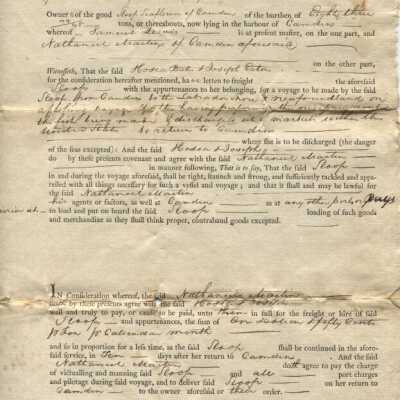 Owner of the good Sloop of Camden of the burthen of Eighty three
tons, or thereabouts, now lying in the harbour of Camden
whereof Samuel is at present master, on the one part, and
Nathaniel Martin of Camden aforesaid
on the other part,
Witnesseth, That the said Hosea Bates & Joseph
for the consideration hereafter mentioned, ha letten to freight the aforesaid
Sloop with the appurtenances to her belonging, for a voyage to be made by the said
Sloop from Camden to the Labradore & Newfoundland on
a fishing
the fish being & discharged at a market within the
United States & return to Camden
where she is to be discharged (the danger
of the seas excepted:) And the said Hosea & Joseph
do by these presents covenant and agree with the said Nathaniel Martin
in manner following, That is to say, That the said Sloop
in and during the voyage aforesaid, shall be tight, staunch and strong, and sufficiently tackled and appa-
relled with all things necessary for such a vessel and voyage; and that it shall and may be lawful for
the said Nathaniel Martin
his agents or factors, as well at Camden as at any other port or pays
to load and put on board the said Sloop loading of such goods
and merchandise as they shall think proper, contraband goods excepted.
IN Consideration whereof, the said Nathaniel Martin
by these presents agree with the said Hosea & Joseph
well and truly to pay, or cause to be paid, unto them in full for the freight or hire of said
Sloop and appurtenances, the sum of One dollar & fifty Cents
per ton per Calendar month
and so in proportion for a less time, as the said Sloop shall be continued in the afore-
said service, in Ten days after her return to Camden And the said
Nathaniel Martin doth agree to pay the charge
of victualling and manning said Sloop and all port charges
and pilotage during said voyage, and to deliver said Sloop on her return to
Camden to the owner aforesaid or their order.